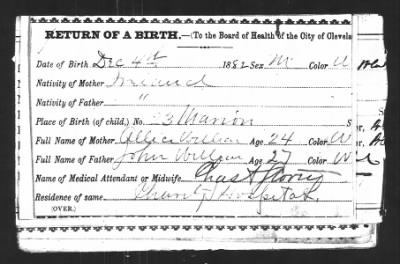 RETURN OF A BIRTH.—(To the Board of Health of the City of Clevela
Date of Birth Dec 4th 1882 Sex M Color W
Nativity of Mother Ireland
Nativity of Father "
Place of Birth (of child.) No. 23 Marion S
Full Name of Mother Age 24 Color W
Full Name of Father John Age 27 Color W
Name of Medical Attendant or Midwife. Chas
Residence of same. Charity Hospital.
(OVER.)